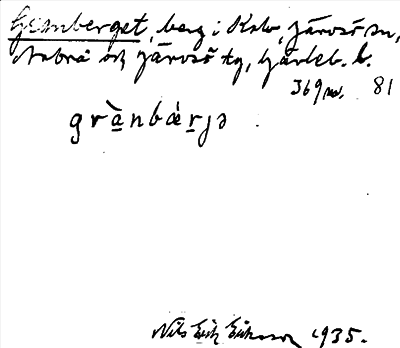 Granberget, berg i Kbv, Järvsö sn,
Stabrä och Järvsö tg, Gävleb. l.
369 m. 81
gràn bǽrjə
Nils Erik Eriksson 1935.